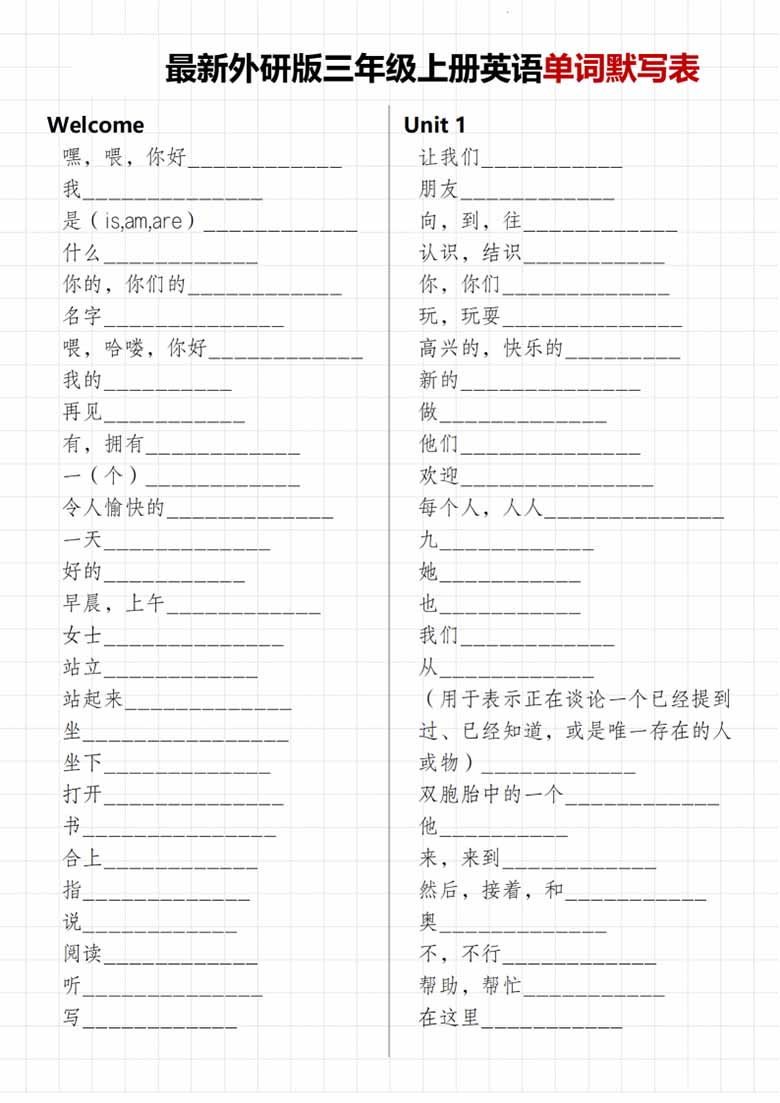 最新外研版三年级上册英语单词默写表
Welcome
嘿，喂，你好____________
我______________
是（is,am,are）____________
什么____________
你的，你们的____________
名字______________
喂，哈喽，你好____________
我的__________
再见___________
有，拥有____________
一（个）____________
令人愉快的_____________
一天_____________
好的___________
早晨，上午____________
女士______________
站立____________
站起来_____________
坐________________
坐下_____________
打开______________
书_______________
合上____________
指_____________
说____________
阅读____________
听______________
写____________
Unit 1
让我们___________
朋友____________
向，到，往____________
认识，结识___________
你，你们_____________
玩，玩耍______________
高兴的，快乐的_________
新的______________
做_____________
他们______________
欢迎_______________
每个人，人人______________
九____________
她___________
也___________
我们____________
从____________
（用于表示正在谈论一个已经提到
过、已经知道，或是唯一存在的人
或物）____________
双胞胎中的一个____________
他__________
来，来到____________
然后，接着，和___________
奥_____________
不，不行____________
帮助，帮忙___________
在这里___________